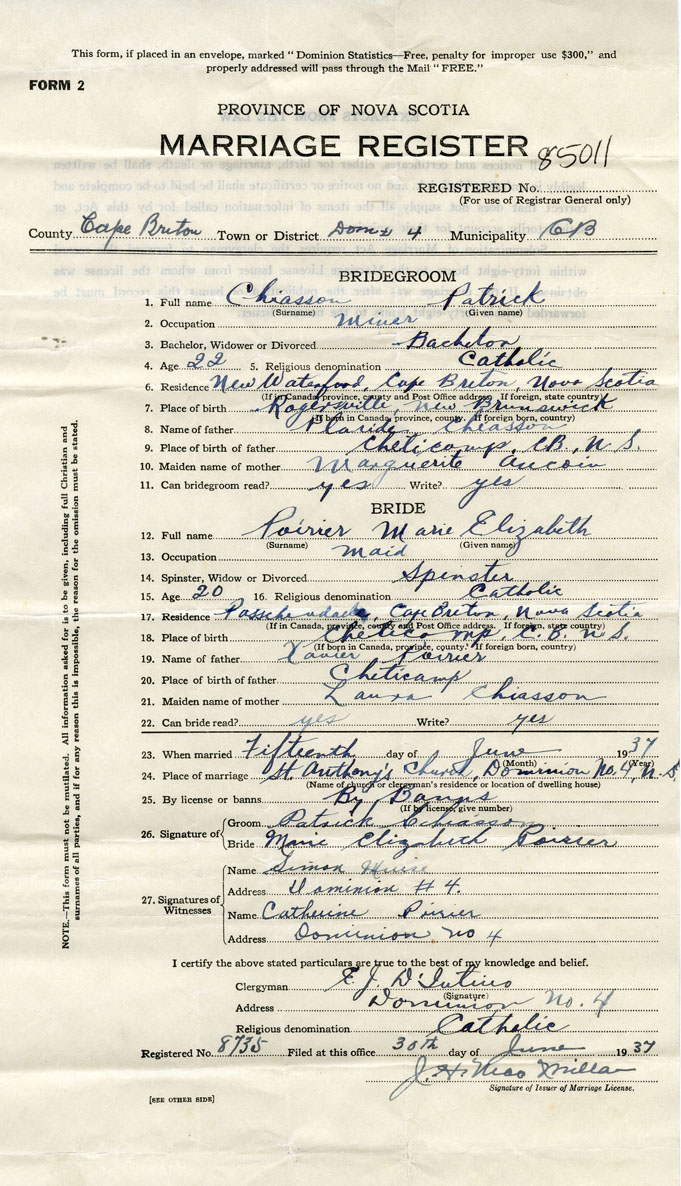 This form, if placed in an envelope, marked "Dominion Statistics—Free, penalty for improper use $300," and
properly addressed will pass through the Mail "FREE."
FORM 2
PROVINCE OF NOVA SCOTIA
MARRIAGE REGISTER 85011
REGISTERED No.
(For use of Registrar General only)
County Cape Breton Town or District Dom # 4 Municipality CB
BRIDEGROOM
1. Full name Chiasson Patrick
(Surname) (Given name)
2. Occupation Miner
3. Bachelor, Widower or Divorced Bachelor
4. Age 22 5. Religious denomination Catholic
6. Residence New Waterford, Cape Breton, Nova Scotia
(If in Canada, province, county and Post Office address. If foreign, state country)
7. Place of birth Rogersville, New Brunswick
(If born in Canada, province, county. If foreign born, country)
8. Name of father Placide Chiasson
9. Place of birth of father Cheticamp, CB, N.S.
10. Maiden name of mother Marguerite Aucoin
11. Can bridegroom read? yes Write? yes
BRIDE
12. Full name Poirier Marie Elizabeth
(Surname) (Given name)
13. Occupation maid
14. Spinster, Widow or Divorced Spenster
15. Age 20 16. Religious denomination Catholic
17. Residence Passchendaele, Cape Breton, Nova Scotia
(If in Canada, province, county and Post Office address. If foreign, state country)
18. Place of birth Cheticamp, C.B. N.S.
(If born in Canada, province, county. If foreign born, country)
19. Name of father Xavier Poirier
20. Place of birth of father Cheticamp
21. Maiden name of mother Laura Chiasson
22. Can bride read? yes Write? yes
23. When married Fifteenth day of June 1937
(Month) (Year)
24. Place of marriage St. Anthony's Church, Dominion No. 4, N.S.
(Name of church or clergyman's residence or location of dwelling house)
25. By license or banns By Banns
(If by license, give number)
26. Signature of
Groom Patrick Chiasson
Bride Marie Elizabeth Poirier
27. Signatures of Witnesses
Name Simon
Address Dominion # 4.
Name Catherine Poirier
Address Dominion No 4
I certify the above stated particulars are true to the best of my knowledge and belief.
Clergyman F. J. D'Intino
(Signature)
Address Dominion No. 4
Religious denomination Catholic
Registered No. 8735 Filed at this office 30th day of June 1937
J. H. MacMillan
Signature of Issuer of Marriage License.
[SEE OTHER SIDE]
NOTE.—This form must not be mutilated. All information asked for is to be given, including full Christian and
surnames of all parties, and if for any reason this is impossible, the reason for the omission must be stated.